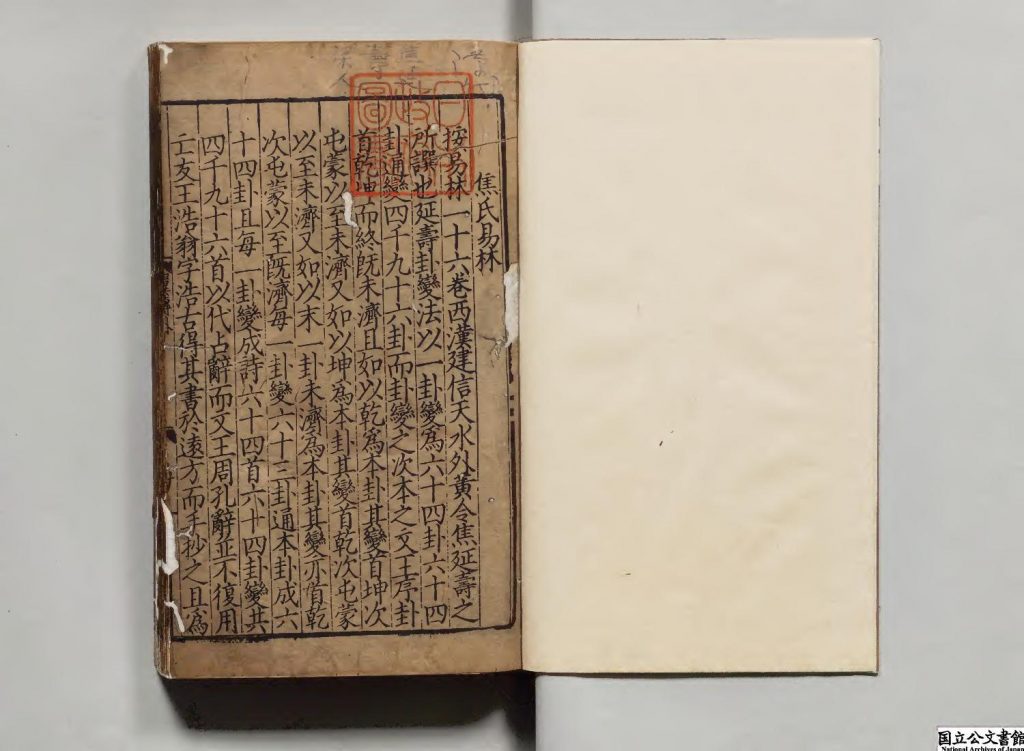 日本政府圖書
焦氏易林
按易林一十六卷西漢建信天水外黃令焦延壽之
所譔也延壽卦變法以一卦變為六十四卦六十四
卦通變四千九十六卦而卦變之次本之文王序卦
首乾坤而終既未濟且如以乾為本卦其變首坤次
屯蒙以至未濟又如以坤為本卦其變首乾次屯蒙
以至未濟又如以末一卦未濟為本卦其變亦首乾
次屯蒙以至既濟每一卦變六十三卦通本卦成六
十四卦且每一卦變成詩六十四首六十四卦變共
四千九十六首以代占辭而文王周孔辭並不復用
亡友王浩翁字浩古得其書於遠方而手抄之且為
国立公文書館
National Archives of Japan